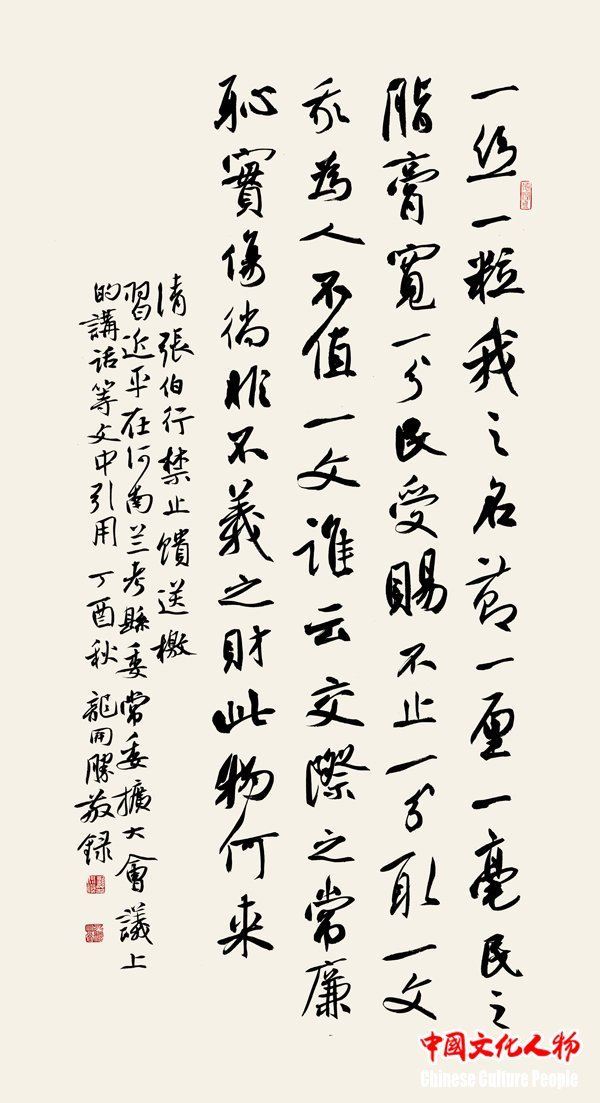 一丝一粒我之名節一厘一毫民之
脂膏寬一分民受賜不止一分取一文
我為人不值一文誰云交際之常廉
恥實傷倘非不義之財此物何来
清張伯行禁止饋送檄
習近平在河南兰考縣委常委擴大會議上
的講話等文中引用 丁酉秋 龍開勝敬録
中国文化人物
Chinese Culture People